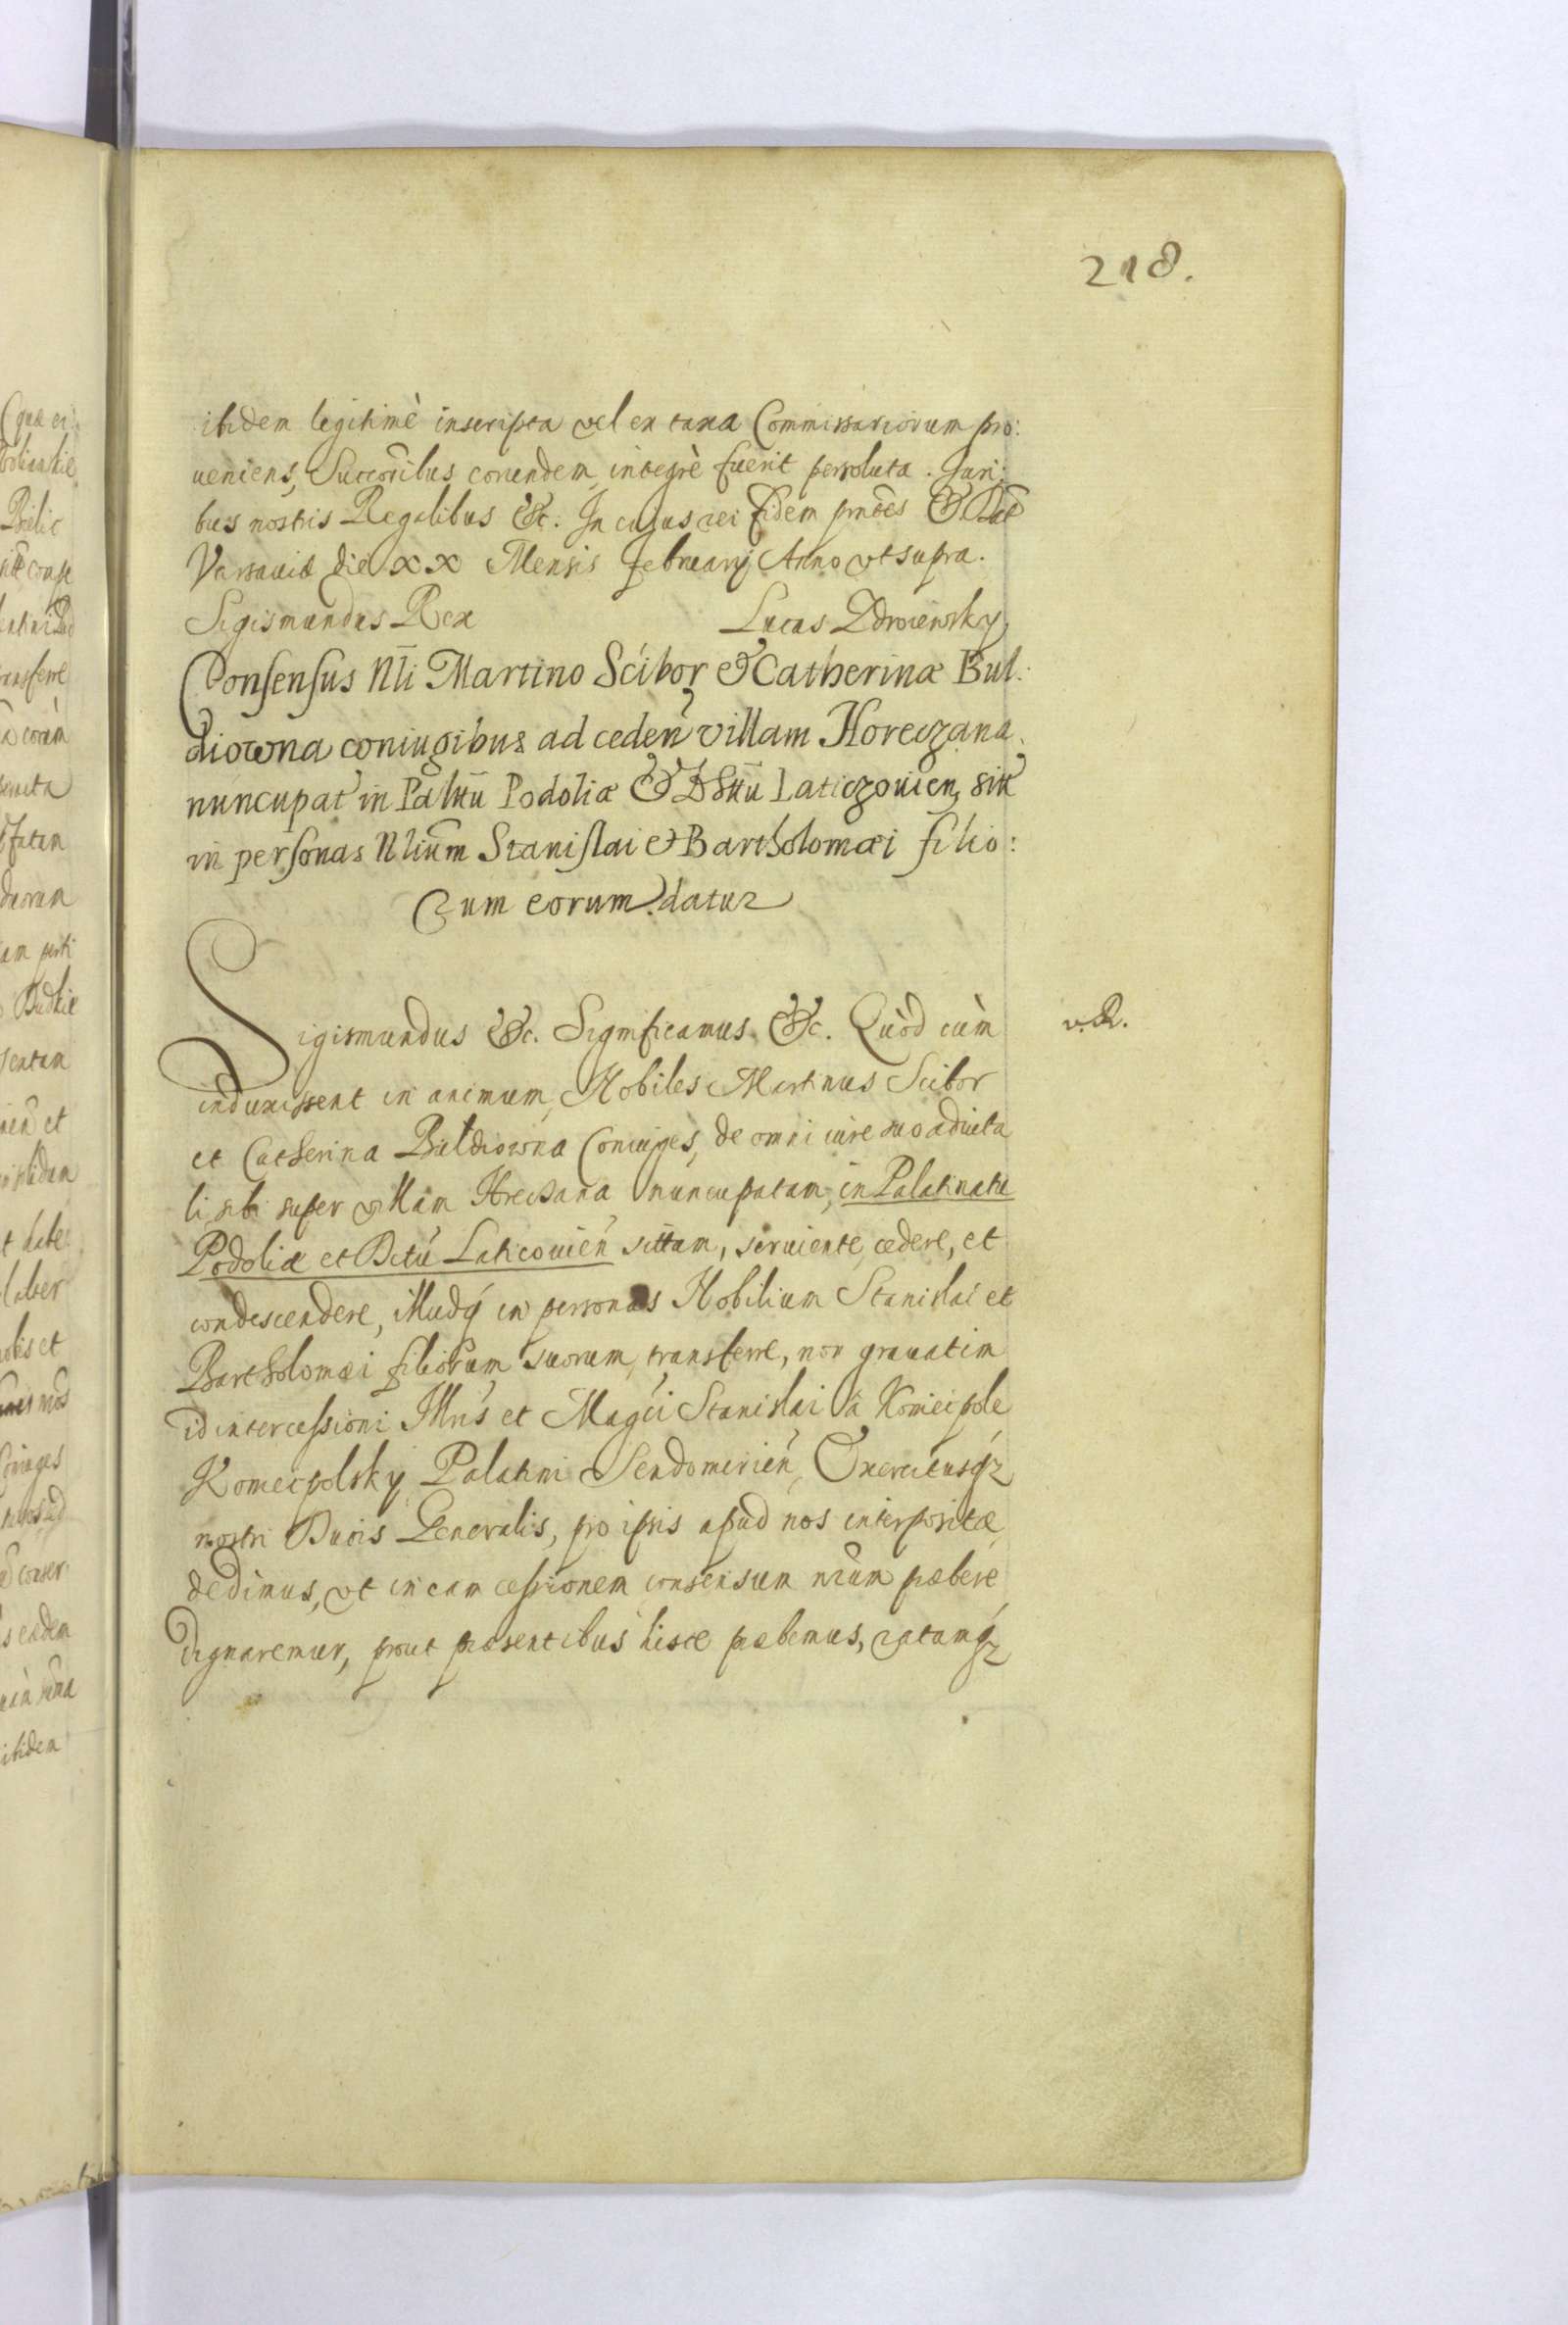 218.
ibidem legitimè inscripta vel ex taxa Commissariorum pro:
ueniens, Succoribus eorundem, integrè fuerit persoluta. Juri:
bus nostris Regalibus &c. In cuius rei fidem pntes & Dat
Varsauiæ die XX Mensis Februarij Anno vt supra.
Sigismundus Rex Lucas Zdroiewsky
Consensus Nli Martino Scibor & Catherinæ Bul:
diowna coniugibus ad ceden villam Horeczana
nuncupat in Paltu Podoliæ & Dsttu Laticzouien, sit
in personas Nlium Stanislai et Bartholomæi filio:
rum eorum datur
Sigismundus &c. Significamus &c. Quòd cùm
v. R.
induxissent in animum, Nobiles Martinus Scibor
et Catherina Buldiowna Coniuges, de omni iure suo aduita
li sibi super villam Hreczana nuncupatam, in Palatinatu
Podoliæ et Dctu Laticouien sittam, seruiente cedere, et
condescendere, illudq in personas Nobilium Stanislai et
Bartholomæi filiorum suorum, transferre, non grauatim
id intercessioni Illris et Magci Stanislai à Koniecpole
Koniecpolsky Palatini Sendomirien, Exercitusq
nostri Ducis Generalis, pro ipsis apud nos interpositæ
dedimus, vt in eam cessionem consensum nrum præbere
dignaremur, prout præsentibus hisce præbemus, ratamq